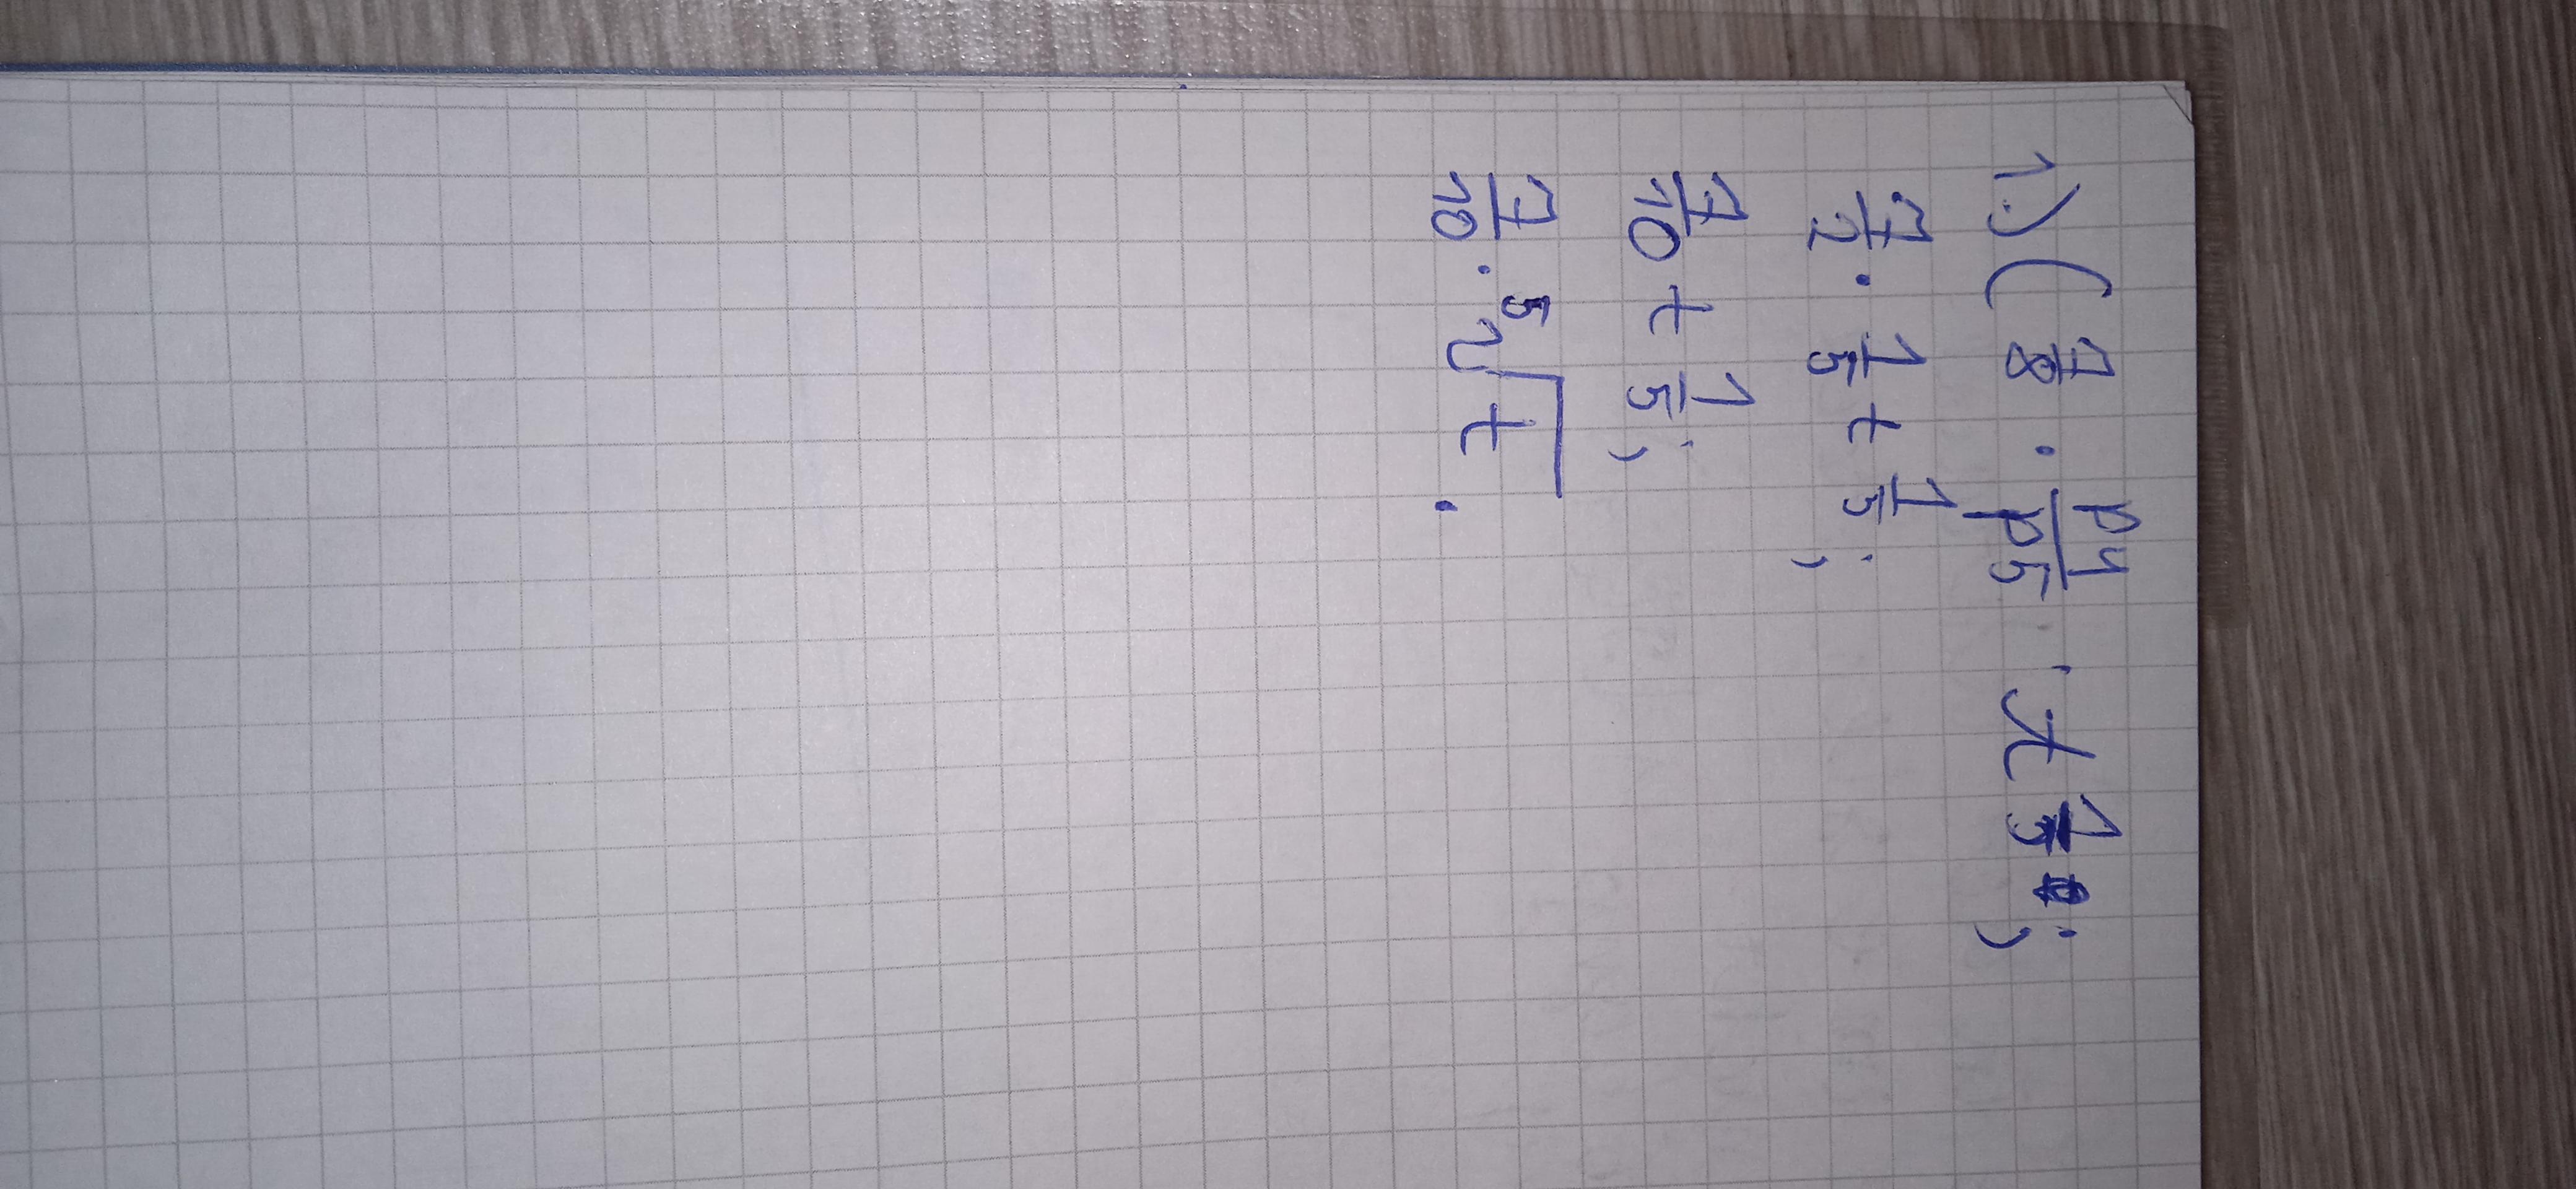 1.) ( 7/8 · p4/p5 · t 1/5 ;
7/2 · 1/5 t 1/5 ;
7/10 t 1/5 ;
7/10 · 5√t .